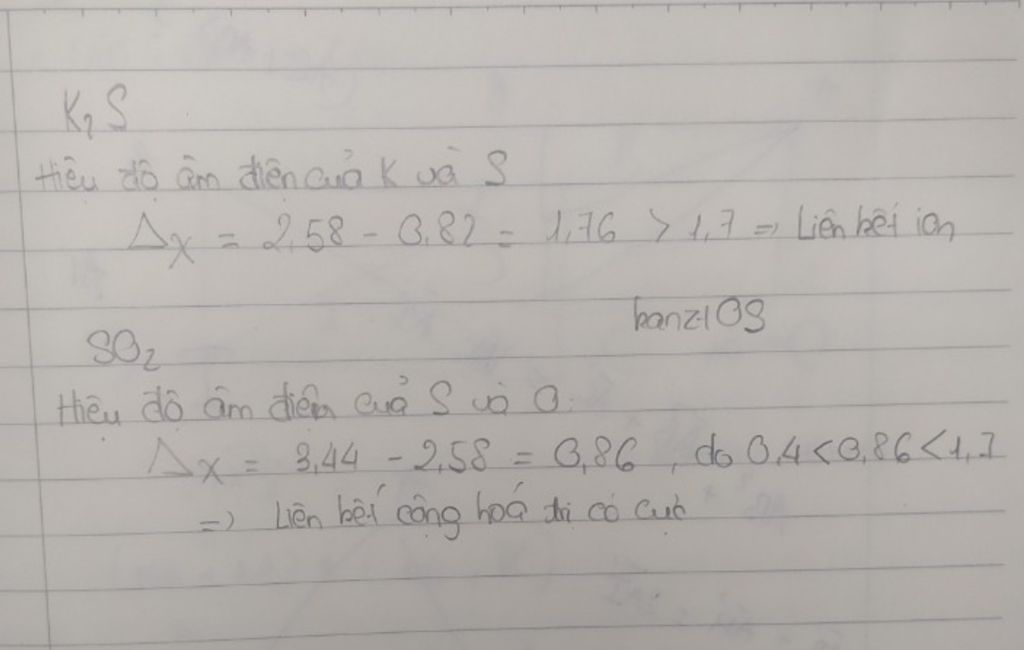 K₂S
Hiệu độ âm điện của K và S
Δχ = 2,58 - 0,82 = 1,76 > 1,7 => Liên kết ion
kanz1OS
SO₂
Hiệu độ âm điện của S và O:
Δχ = 3,44 - 2,58 = 0,86, do 0,4 < 0,86 < 1,7
=> Liên kết cộng hoá trị có cực